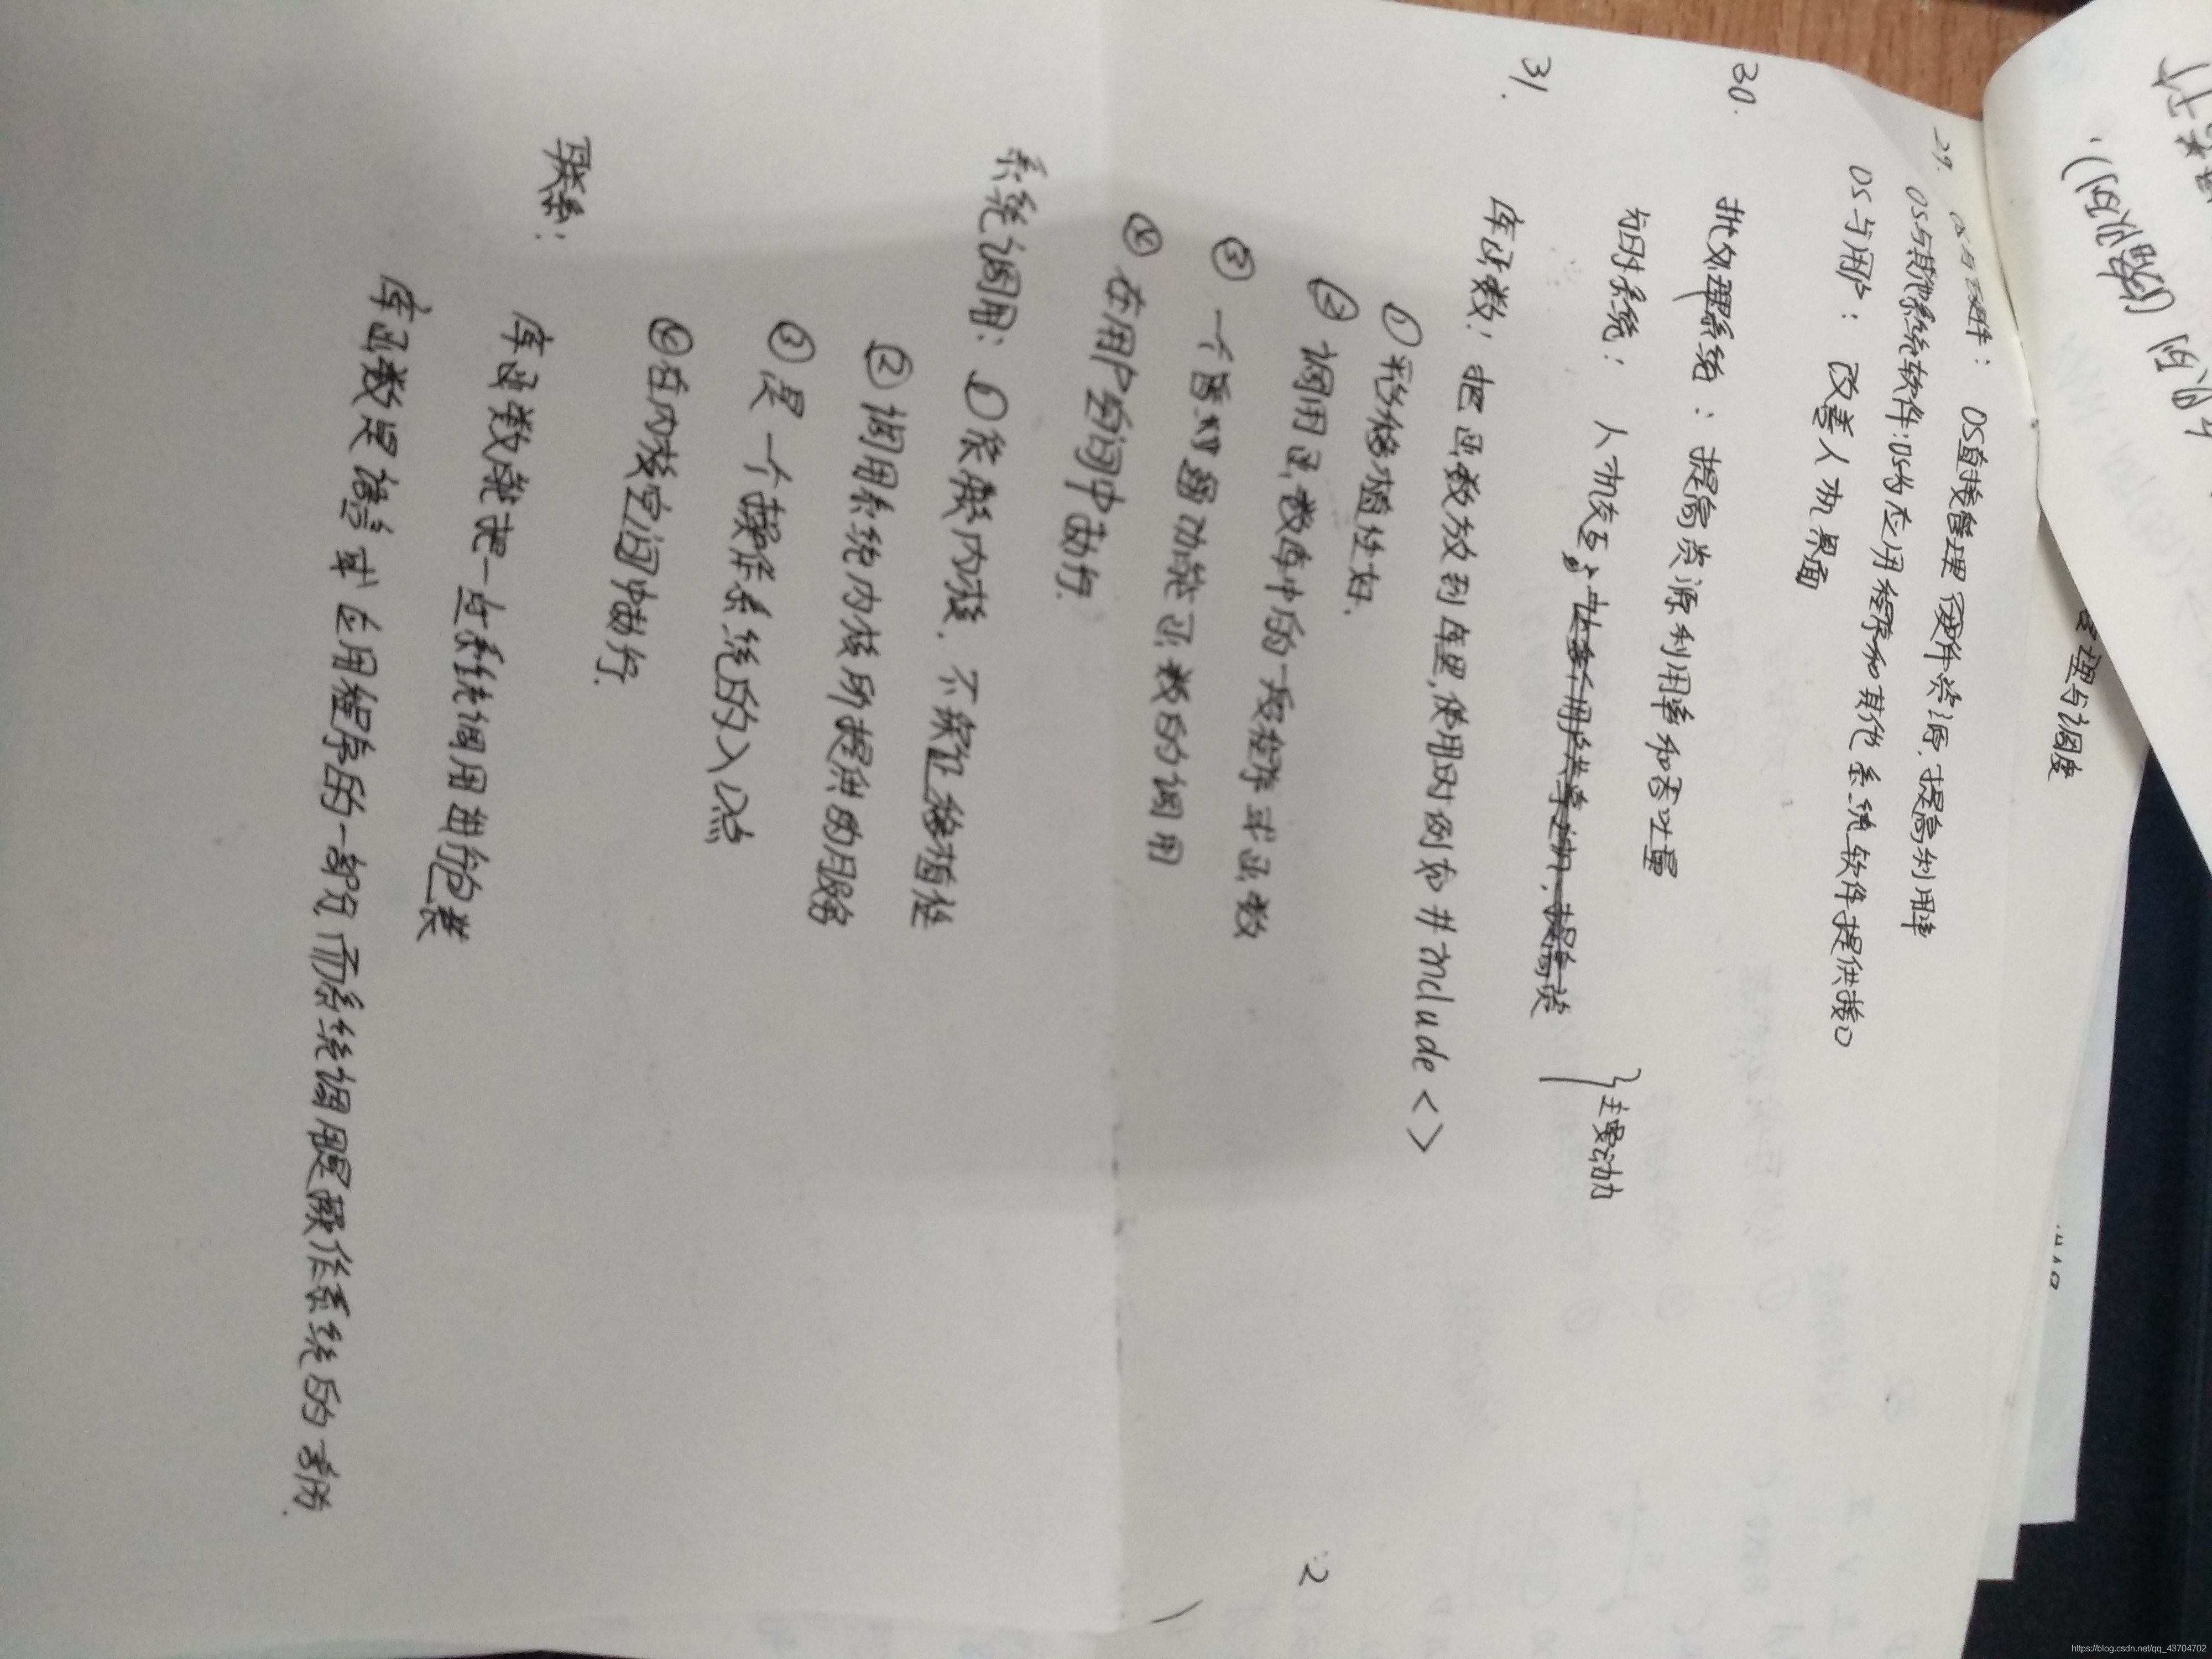 29. OS与硬件： OS直接管理硬件资源，提高利用率
OS与其他系统软件：OS为应用程序和其他系统软件提供接口
OS与用户： 改善人机界面
30. 批处理系统：提高资源利用率和吞吐量
分时系统： 人机交互
}主要动力
31. 库函数：把函数放到库里，使用时例如 #include < >
① 移植性好.
② 调用函数库中的一段程序或函数
③ 一个 功能函数的调用
④ 在用户空间中执行.
系统调用：①依赖内核，不保证移植性
②调用系统内核所提供的服务
③是一个操作系统的入口点
④在内核空间中执行.
联系：
库函数就把一些系统调用进行包装
库函数是语言或应用程序的一部分而系统调用是操作系统的一部分.
管理与调度
队列
(就绪队列).
2
https://blog.csdn.net/qq_43704702